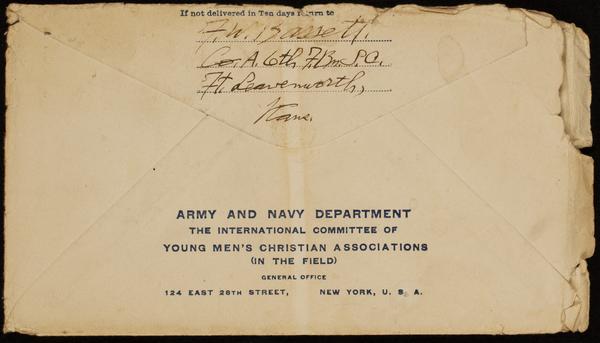 If not delivered in Ten days return to
F. W. Bassett.
Co. A. 6th F. Bn. S. C.
Ft. Leavenworth,
Kans.
ARMY AND NAVY DEPARTMENT
THE INTERNATIONAL COMMITTEE OF
YOUNG MEN'S CHRISTIAN ASSOCIATIONS
(IN THE FIELD)
GENERAL OFFICE
124 EAST 28TH STREET, NEW YORK, U. S. A.